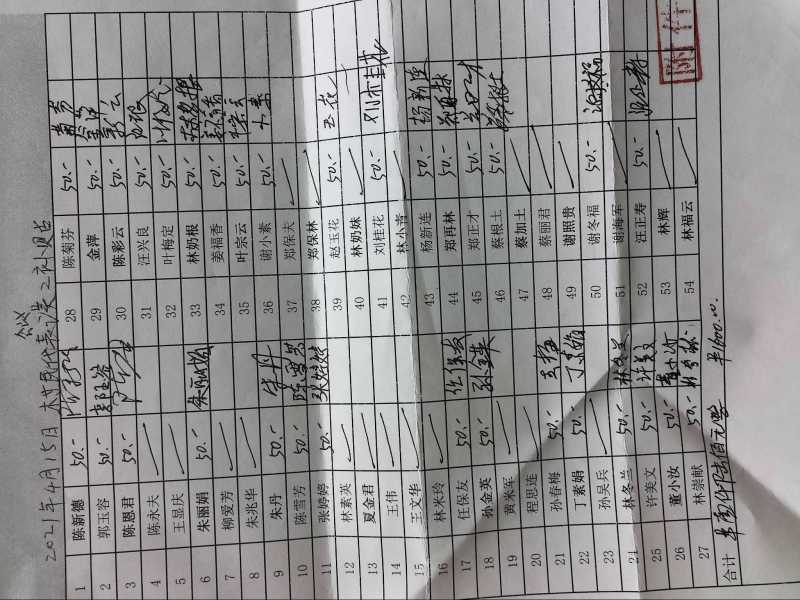 2021年4月15日 村民代表会议误工补贴
1 陈新德 50.-
2 郭玉容 50.-
3 陈恩君 50.-
4 陈永夫
5 王显庆
6 朱丽娟 50.- 朱丽娟
7 柳爱芳
8 朱兆华
9 朱丹 50.- 朱丹
10 陈雪芳 50.- 陈雪芳
11 张婷婷 50.- 张婷婷
12 林素英
13 夏金君
14 王伟
15 王文华
16 林米玲
17 任保友 50.- 任保友
18 孙金英 50.- 孙金英
19 黄米军
20 程思连
21 孙春梅 50.-
22 丁素娟 50.- 丁素娟
23 孙吴兵
24 林冬兰 50.- 林冬兰
25 许美文 50.- 许美文
26 董小汝 50.- 董小汝
27 林崇献 50.-
28 陈菊芬 50.-
29 金萍 50.-
30 陈彩云 50.-
31 汪兴良 50.-
32 叶梅定 50.-
33 林奶根 50.-
34 姜福香 50.-
35 叶宗云 50.-
36 谢小素 50.-
37 郑保夫
38 郑保林
39 赵玉花 50.- 玉花
40 林奶妹
41 刘桂花 50.- 刘桂花
42 林小音
43 杨新连 50.- 杨新连
44 郑再林 50.- 郑再林
45 郑正才 50.-
46 蔡根土 50.-
47 蔡加土
48 蔡丽君
49 谢照贵
50 谢冬福 50.-
51 谢海军
52 汪正寿 50.-
53 林辉
54 林福云
合计 ¥1600.00
附件